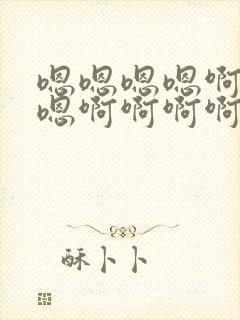 嗯嗯嗯嗯啊
嗯啊啊啊啊
酥卜卜